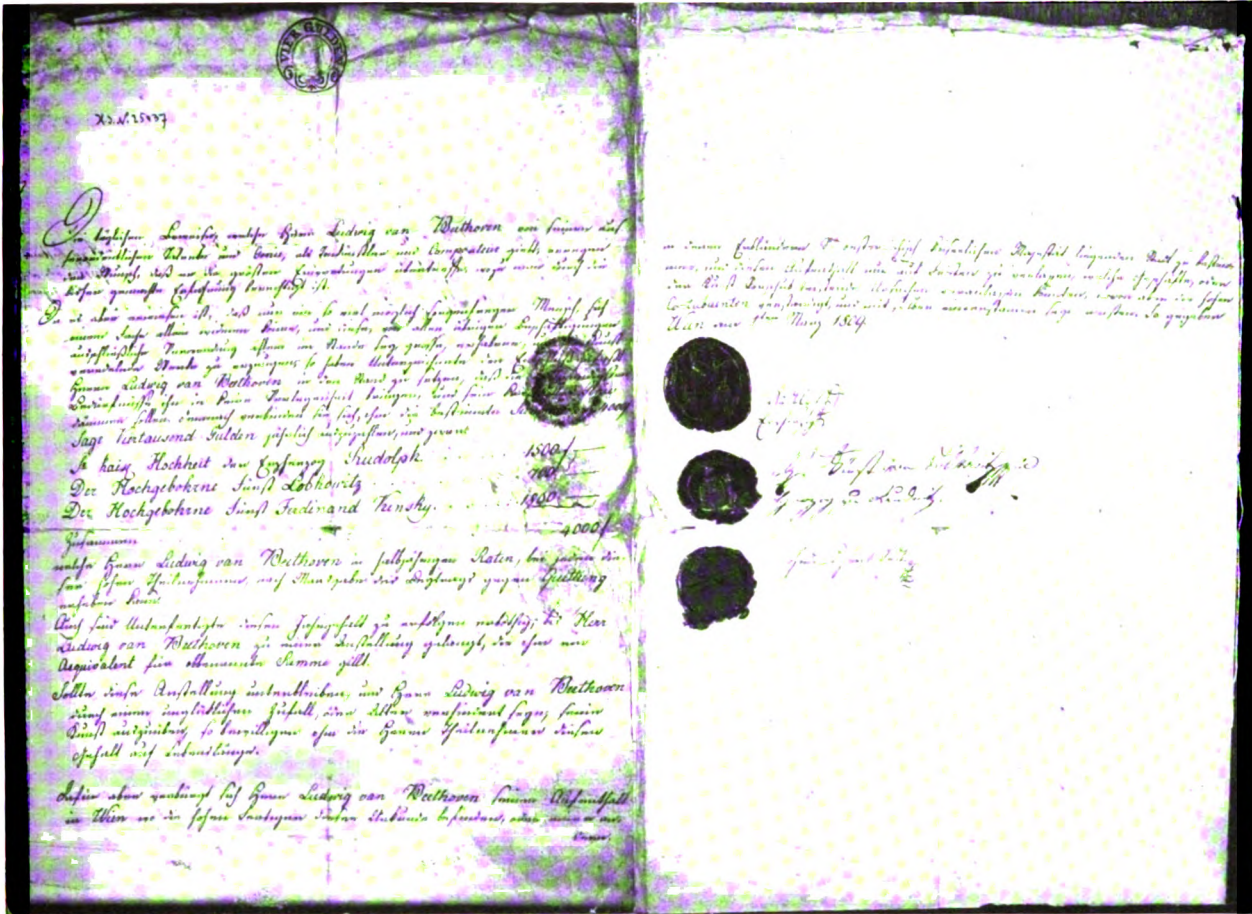 VIER GULDEN
Die täglichen Beweise, welche Herr Ludwig van Beethoven von seinem auß
und Genie, als Tonkünstler und Compositeur giebt, erregen
den Wunsch, daß er die größten Erwartungen übertreffe, wozu man durch die
bisher gemachte Erfahrung berechtigt ist.
Da es aber erwiesen ist, daß nur ein so viel möglich Sorgenfreyer Mensch sich
einem Fache allein widmen könne, und diese, von allen übrigen Beschäftigungen
ausschließliche Verwendung allein im Stande sey große, erhabene,
veredelnde Werke zu erzeugen; so haben Unterzeichnete den
Herrn Ludwig van Beethoven in den Stand zu setzen, daß
Bedürfnisse ihn in keine Verlegenheit bringen, und sein
dämmen sollen. Demnach verbinden Sie sich, ihm die bestimmte
Sage Viertausend Gulden jährlich auszuzahlen, und zwar:
Se kais. Hochheit der Erzherzog Rudolph 1500 f
Der Hochgebohrne Fürst Lobkowitz 700
Der Hochgebohrne Fürst Ferdinand Kinsky. 1800
Zusammen 4000 f
welche Herr Ludwig van Beethoven in halbjährigen Raten, bey jedem die-
ser hohen Theilnehmer, nach Maasgabe des Beytrags gegen Quittung
erheben kann.
Auch sind Unterfertigte diesen Jahrgehalt zu erfolgen erböthig, bis Herr
Ludwig van Beethoven zu einer Anstellung gelangt, die ihm ein
Aequivalent für obbenannte Summe gibt.
Sollte diese Anstellung unterbleiben, und Herr Ludwig van Beethoven
durch einen unglücklichen Zufall, oder Alter verhindert seyn, seine
Kunst auszuüben, so bewilligen ihm die Herrn Theilnehmer diesen
Gehalt auf Lebenslänge.
Dafür aber verbürgt sich Herr Ludwig van Beethoven seinen Aufenthalt
in Wien wo die hohen Fertiger dieser Urkunde befinden, oder einer an-
deren
in denen Erbländern Sr österr. kaiserlichen Majestät liegenden Stadt zu bestim-
men, und diesen Aufenthalt nur auf Fristen zu verlassen, welche Geschäfte, oder
der Kunst Vorschub leistende Ursachen veranlassen könnten, wovon aber die hohen
Contribuenten verständigt, und mit, ihm einverstanden seyn müßten. So gegeben
Wien am 1ten März 1809.
Rudolph
Erzherzog